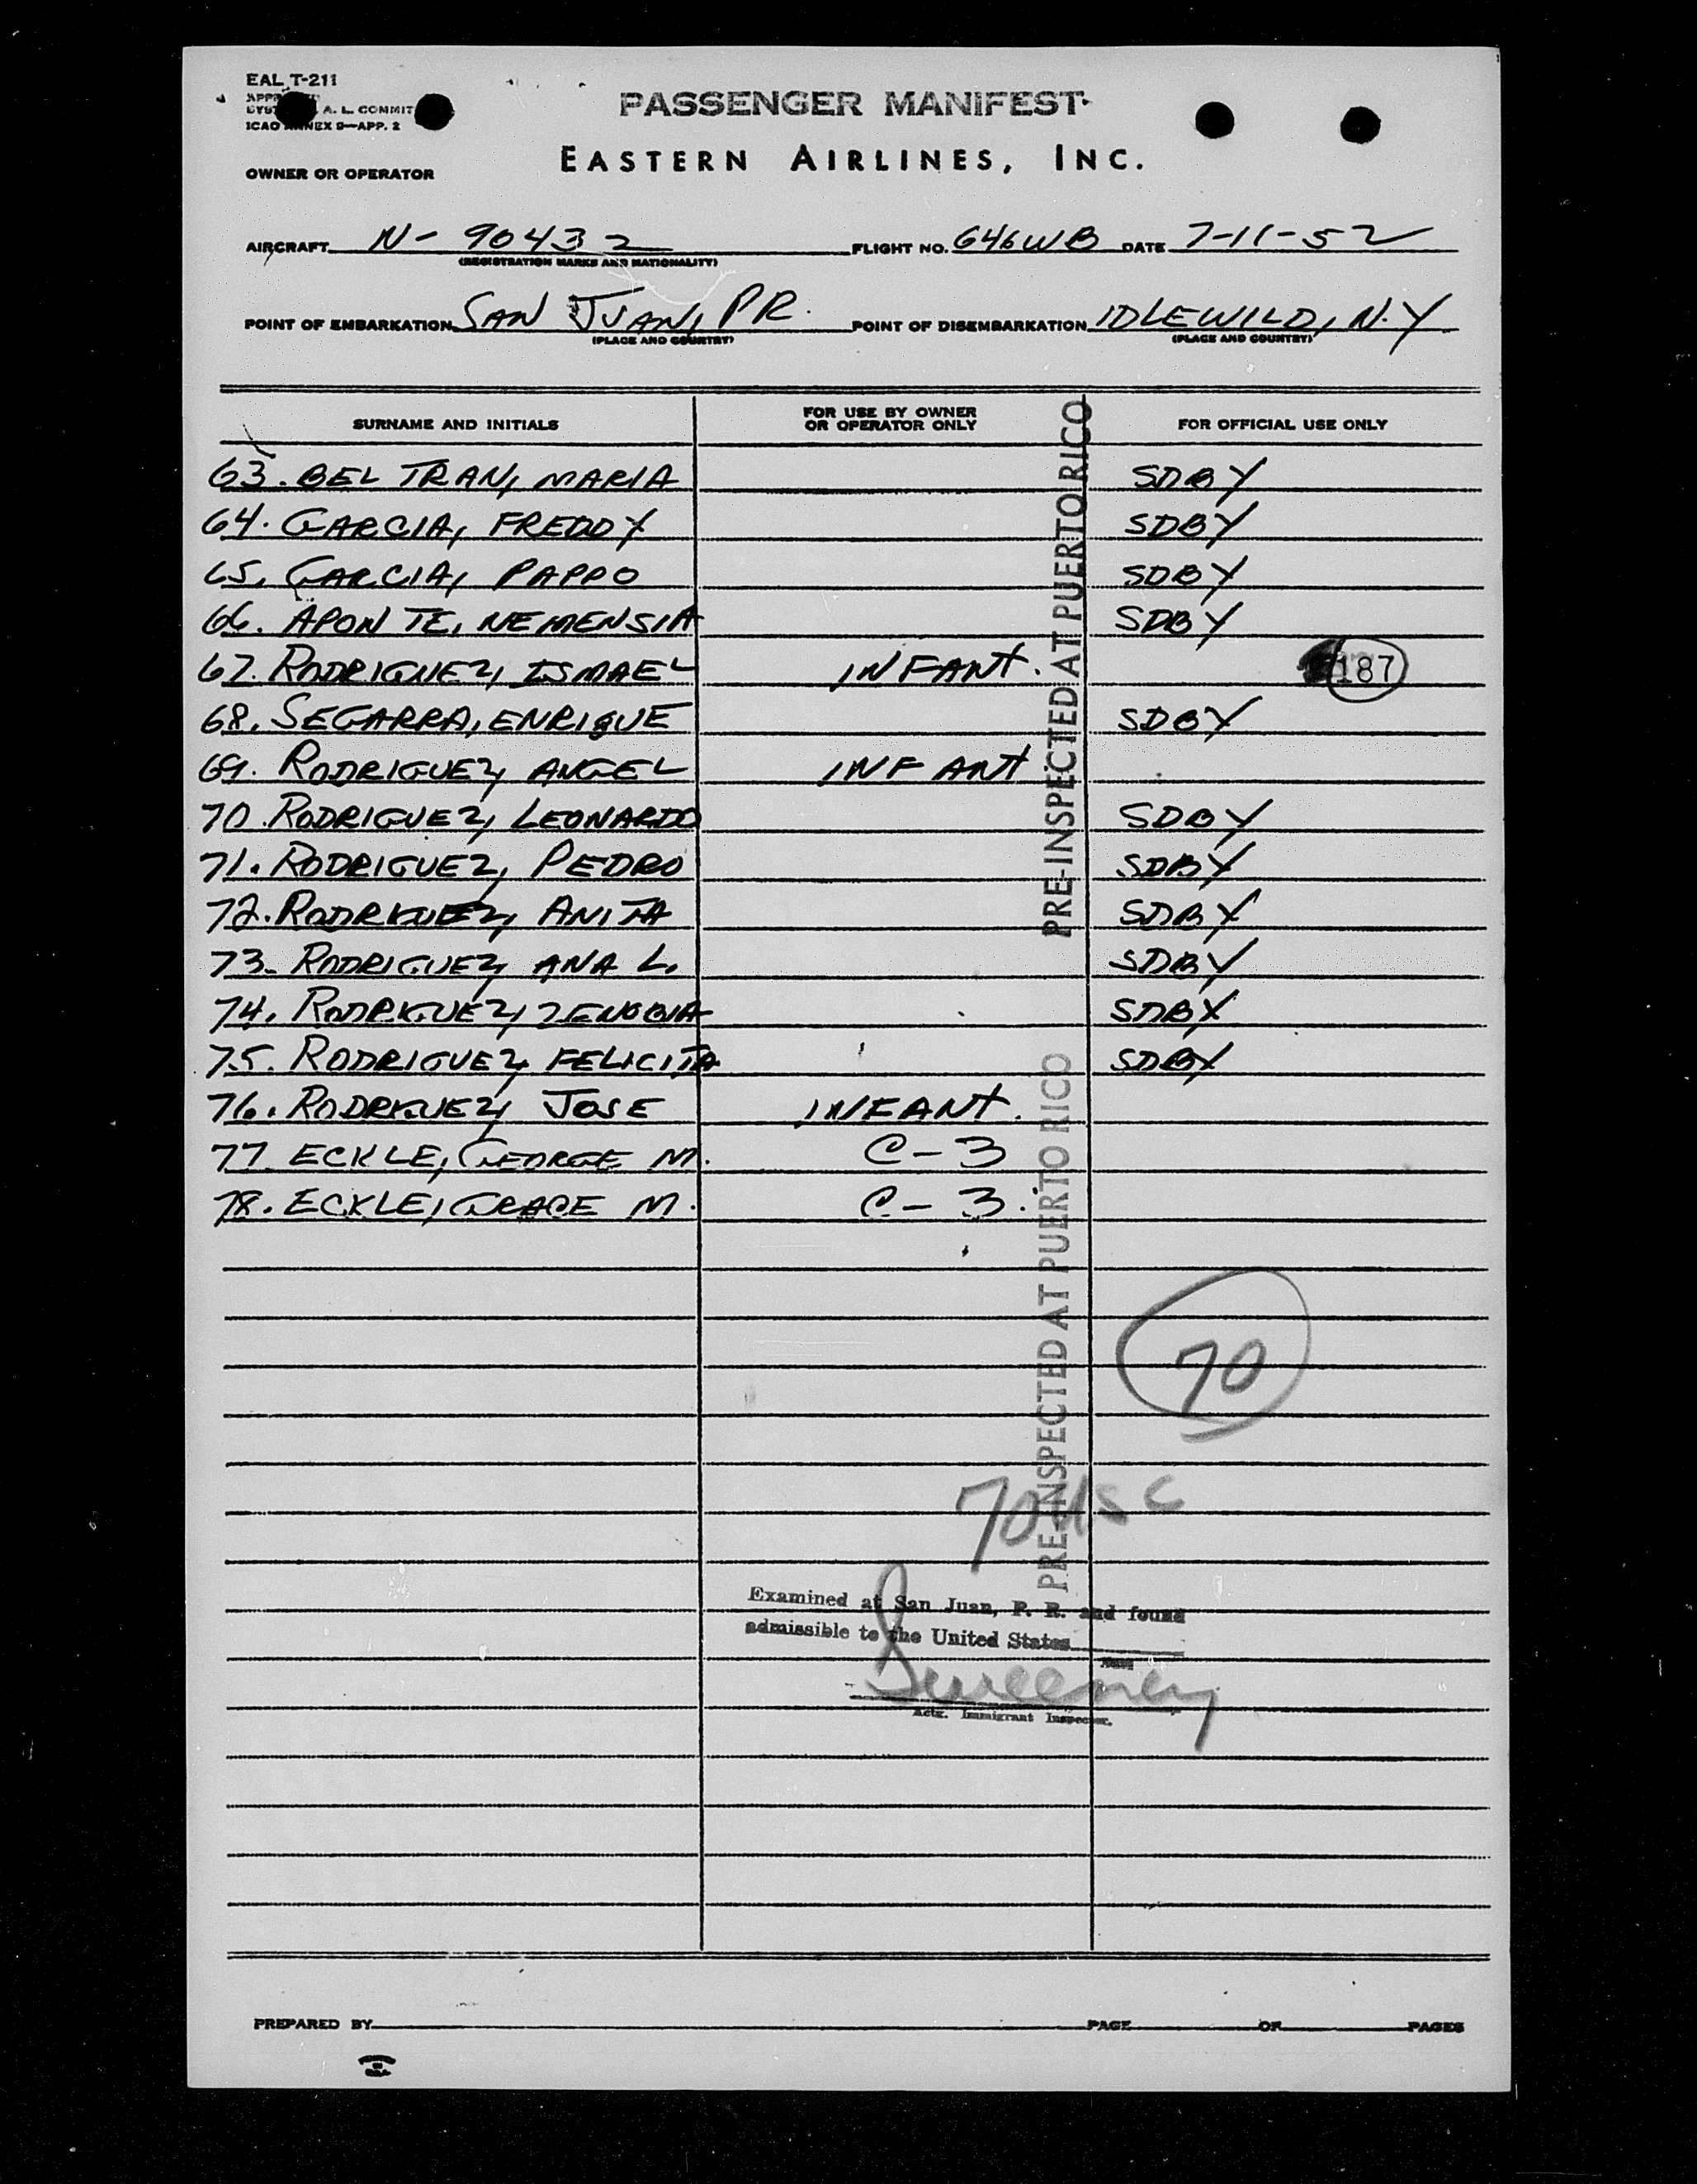 EAL T-211
PASSENGER MANIFEST
A. L. COMMIT
ICAO ANNEX 9—APP. 2
EASTERN AIRLINES, INC.
OWNER OR OPERATOR
AIRCRAFT N- 90432 FLIGHT NO. 646WB DATE 7-11-52
(REGISTRATION MARKS AND NATIONALITY)
POINT OF EMBARKATION SAN JUAN, PR. POINT OF DISEMBARKATION IDLEWILD, N.Y
(PLACE AND COUNTRY) (PLACE AND COUNTRY)
SURNAME AND INITIALS FOR USE BY OWNER OR OPERATOR ONLY FOR OFFICIAL USE ONLY
63. BELTRAN, MARIA SDBY
64. GARCIA, FREDDY SDBY
65. GARCIA, PAPPO SDBY
66. APONTE, NEMENSIA SDBY
67. RODRIGUEZ, ISMAEL INFANT. 187
68. SEGARRA, ENRIQUE SDBY
69. RODRIGUEZ, ANGEL INFANT
70. RODRIGUEZ, LEONARDO SDBY
71. RODRIGUEZ, PEDRO SDBY
72. RODRIGUEZ, ANITA SDBY
73. RODRIGUEZ, ANA L. SDBY
74. RODRIGUEZ, ZENOBIA SDBY
75. RODRIGUEZ, FELICITA SDBY
76. RODRIGUEZ, JOSE INFANT.
77. ECKLE, GEORGE M. C-3
78. ECKLE, GRACE M. C-3.
PRE-INSPECTED AT PUERTO RICO
PRE-INSPECTED AT PUERTO RICO
70
70 USC
Examined at San Juan, P. R. and found
admissible to the United States
Sweeney
Actg. Immigrant Inspector.
PREPARED BY PAGE OF PAGES